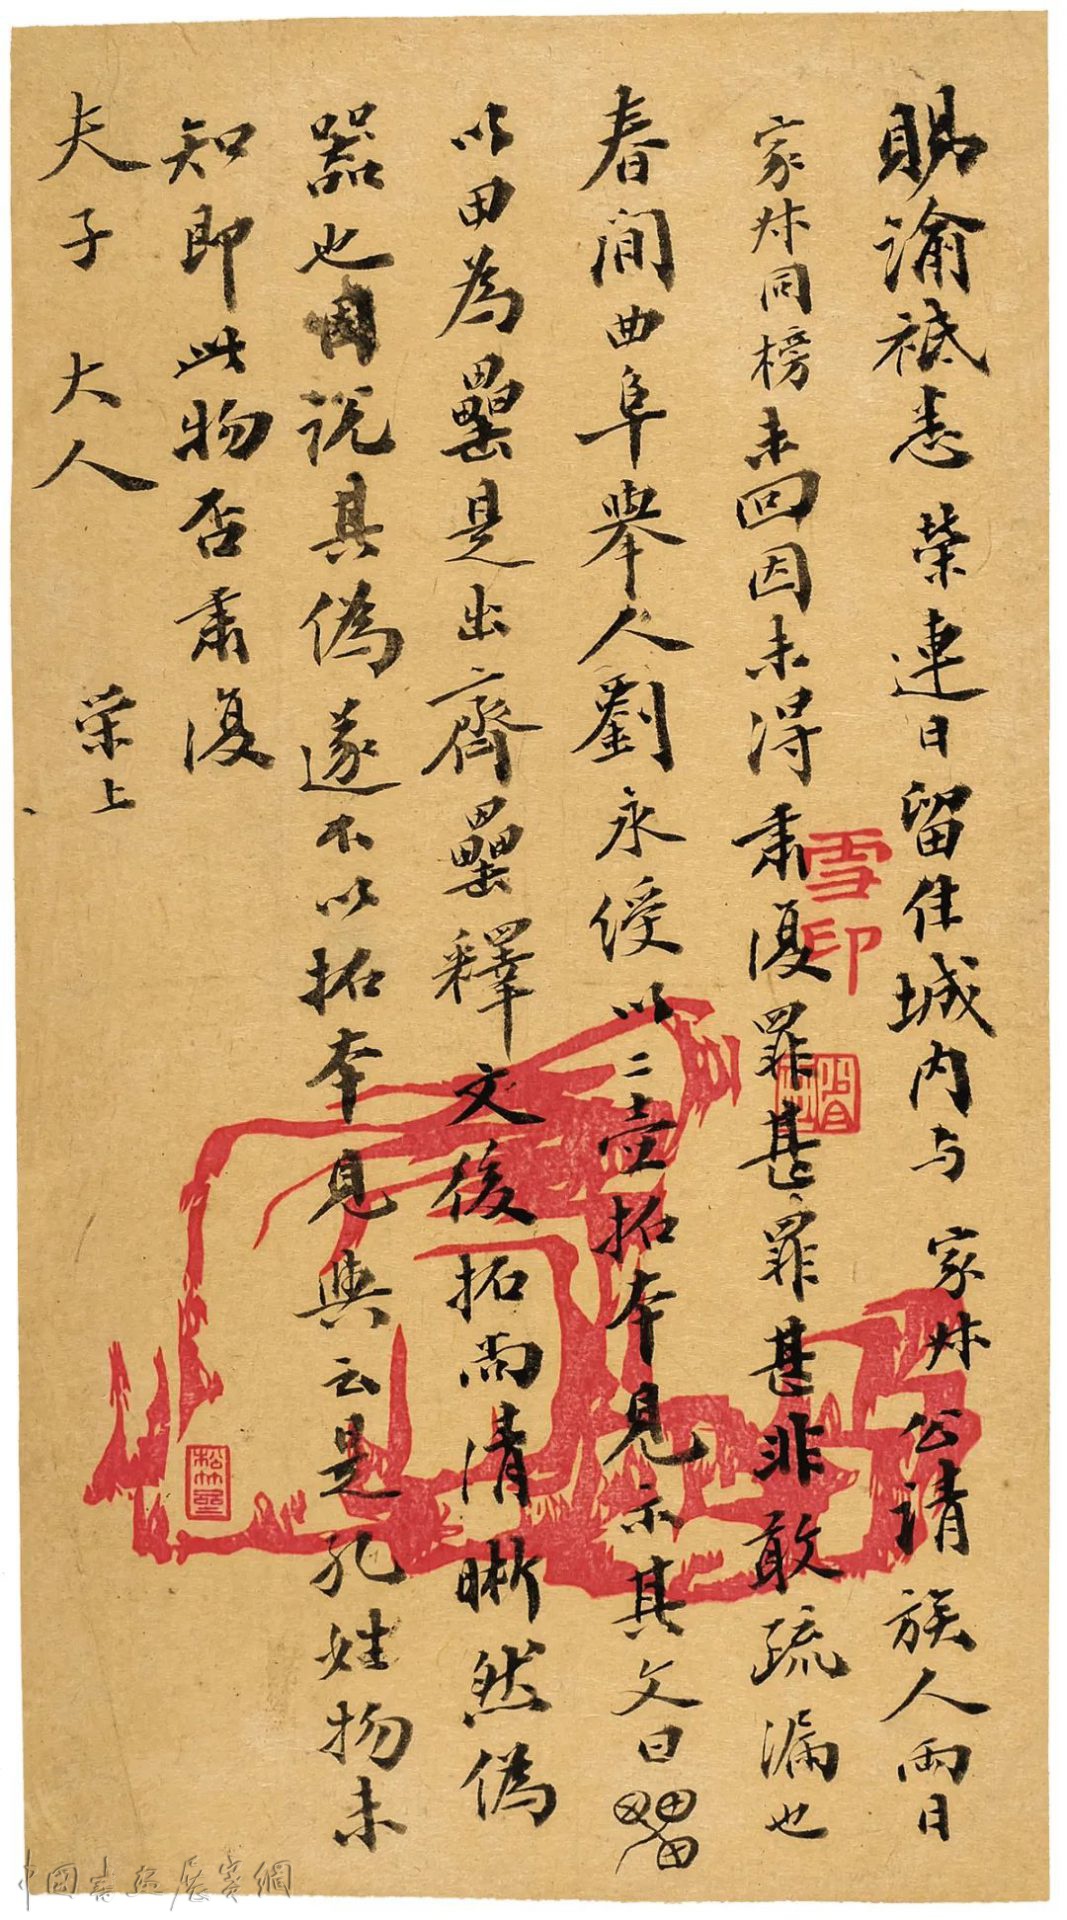 賜諭祗悉榮連日留住城内与家叔公請族人兩日
家叔同榜未回因未得肅復罪甚罪甚非敢疏漏也
春間曲阜舉人劉永綬以二壺拓本見示其文曰
以田為罍是出齊罍釋文後拓尚清晰然偽
器也因說其偽遂不以拓本見與云是孔姓物未
知即此物否肅復
夫子大人
榮上
雪印
松竹
中國嘉德展賓網